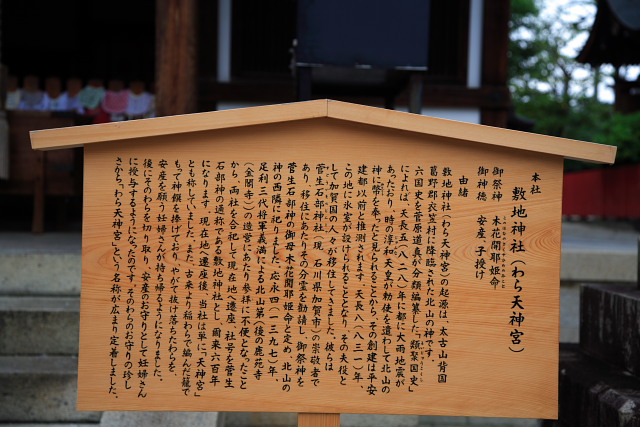 本社
敷地神社（わら天神宮）
御祭神　木花開耶姫命
御神徳　安産・子授け
由緒
敷地神社（わら天神宮）の起源は、太古山背国
葛野郡衣笠村に降臨された北山の神です。
六国史を菅原道真が分類編纂した「類聚国史」
によれば、天長五（八二八）年に都に大雨地震が
あったおり、時の淳和天皇が勅使を遣わして北山の
神に幣を奉ったと見られることから、その創建は平安
建都以前と推測されます。天長八（八三一）年、
この地に氷室が設けられることとなり、その夫役と
して加賀国の人々が移住してきました。彼らは
菅生石部神社（現　石川県加賀市）の崇敬者で
あり、移住にあたりその分霊を勧請し、御祭神を
菅生石部神の御母木花開耶姫命と定め、北山の
神の西隣に祀りました。応永四（一三九七）年、
足利三代将軍義満による北山第（後の鹿苑寺
（金閣寺））の造営にあたり参拝に不便となったこと
から、両社を合祀して現在地へ遷座、社号を菅生
石部神の通称である敷地神社とし、爾来六百年
になります。現在地へ遷座後、当社は単に「天神宮」
とも称していました。また、古来より稲わらで編んだ籠で
もって神饌を捧げており、やがて抜け落ちたわらを、
安産を願う妊婦さんが持ち帰るようになりました。
後にそのわらを切り取り、安産のお守りとして妊婦さん
に授与するようになったのです。そのわらのお守りの珍し
さから、「わら天神宮」という名称が広まり定着しました。